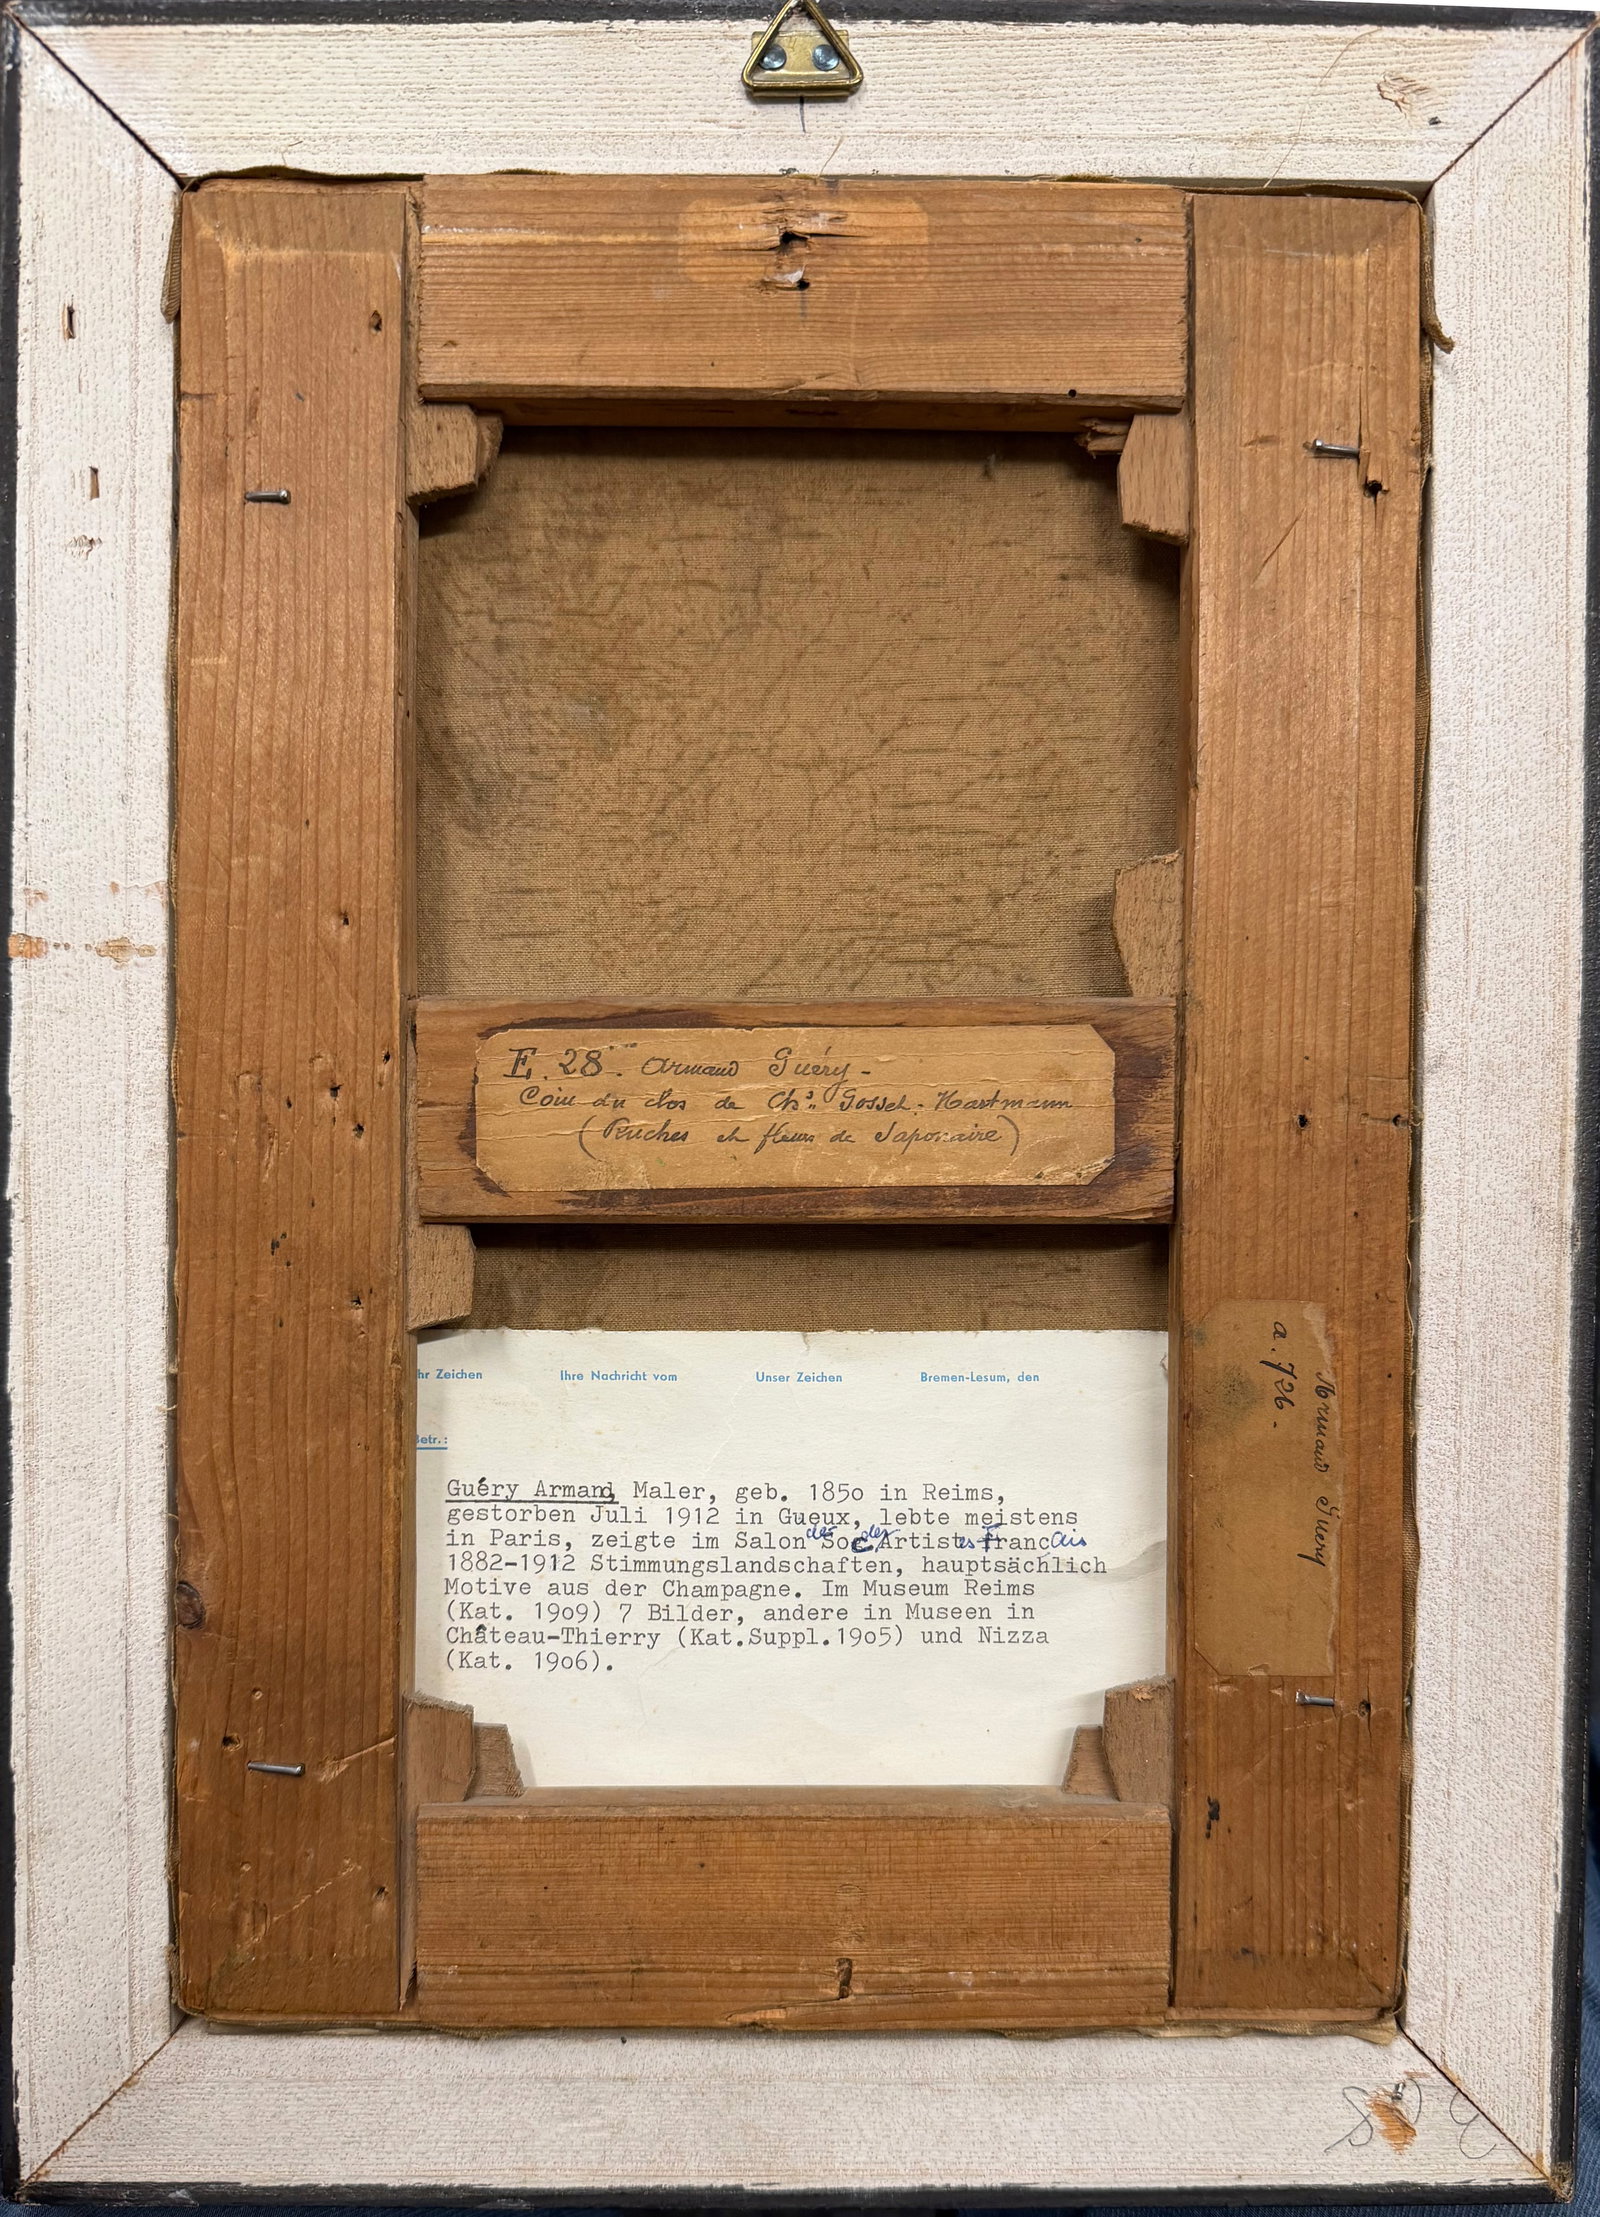 E. 28. Armand Guéry -
Coin du clos de Chs. Gosset-Hartmann
(Ruches et fleurs de Saponaire)
hr Zeichen Ihre Nachricht vom Unser Zeichen Bremen-Lesum, den
Betr.:
Guéry Armand, Maler, geb. 1850 in Reims,
gestorben Juli 1912 in Gueux, lebte meistens
in Paris, zeigte im Salon der Soc. des Artistes Francais
1882-1912 Stimmungslandschaften, hauptsächlich
Motive aus der Champagne. Im Museum Reims
(Kat. 1909) 7 Bilder, andere in Museen in
Château-Thierry (Kat.Suppl.1905) und Nizza
(Kat. 1906).
Armand Guery
a. 726.